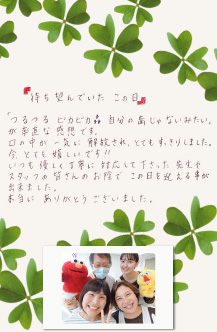 『待ち望んでいた この日』
「つるつる ピカピカ 自分の歯じゃないみたい。」
が率直な感想です。
口の中が一気に解放され、とてもすっきりしました。
今、とても嬉しいです!!
いつも優しく丁寧に対応して下さった先生や
スタッフの皆さんのお陰で この日を迎える事が
出来ました。
本当に ありがとうございました。